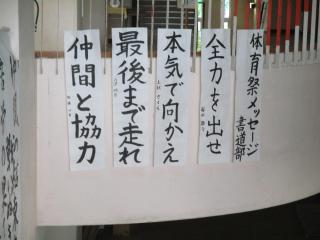 体育祭メッセージ
書道部
全力を出せ
本気で向かえ
最後まで走れ
仲間と協力